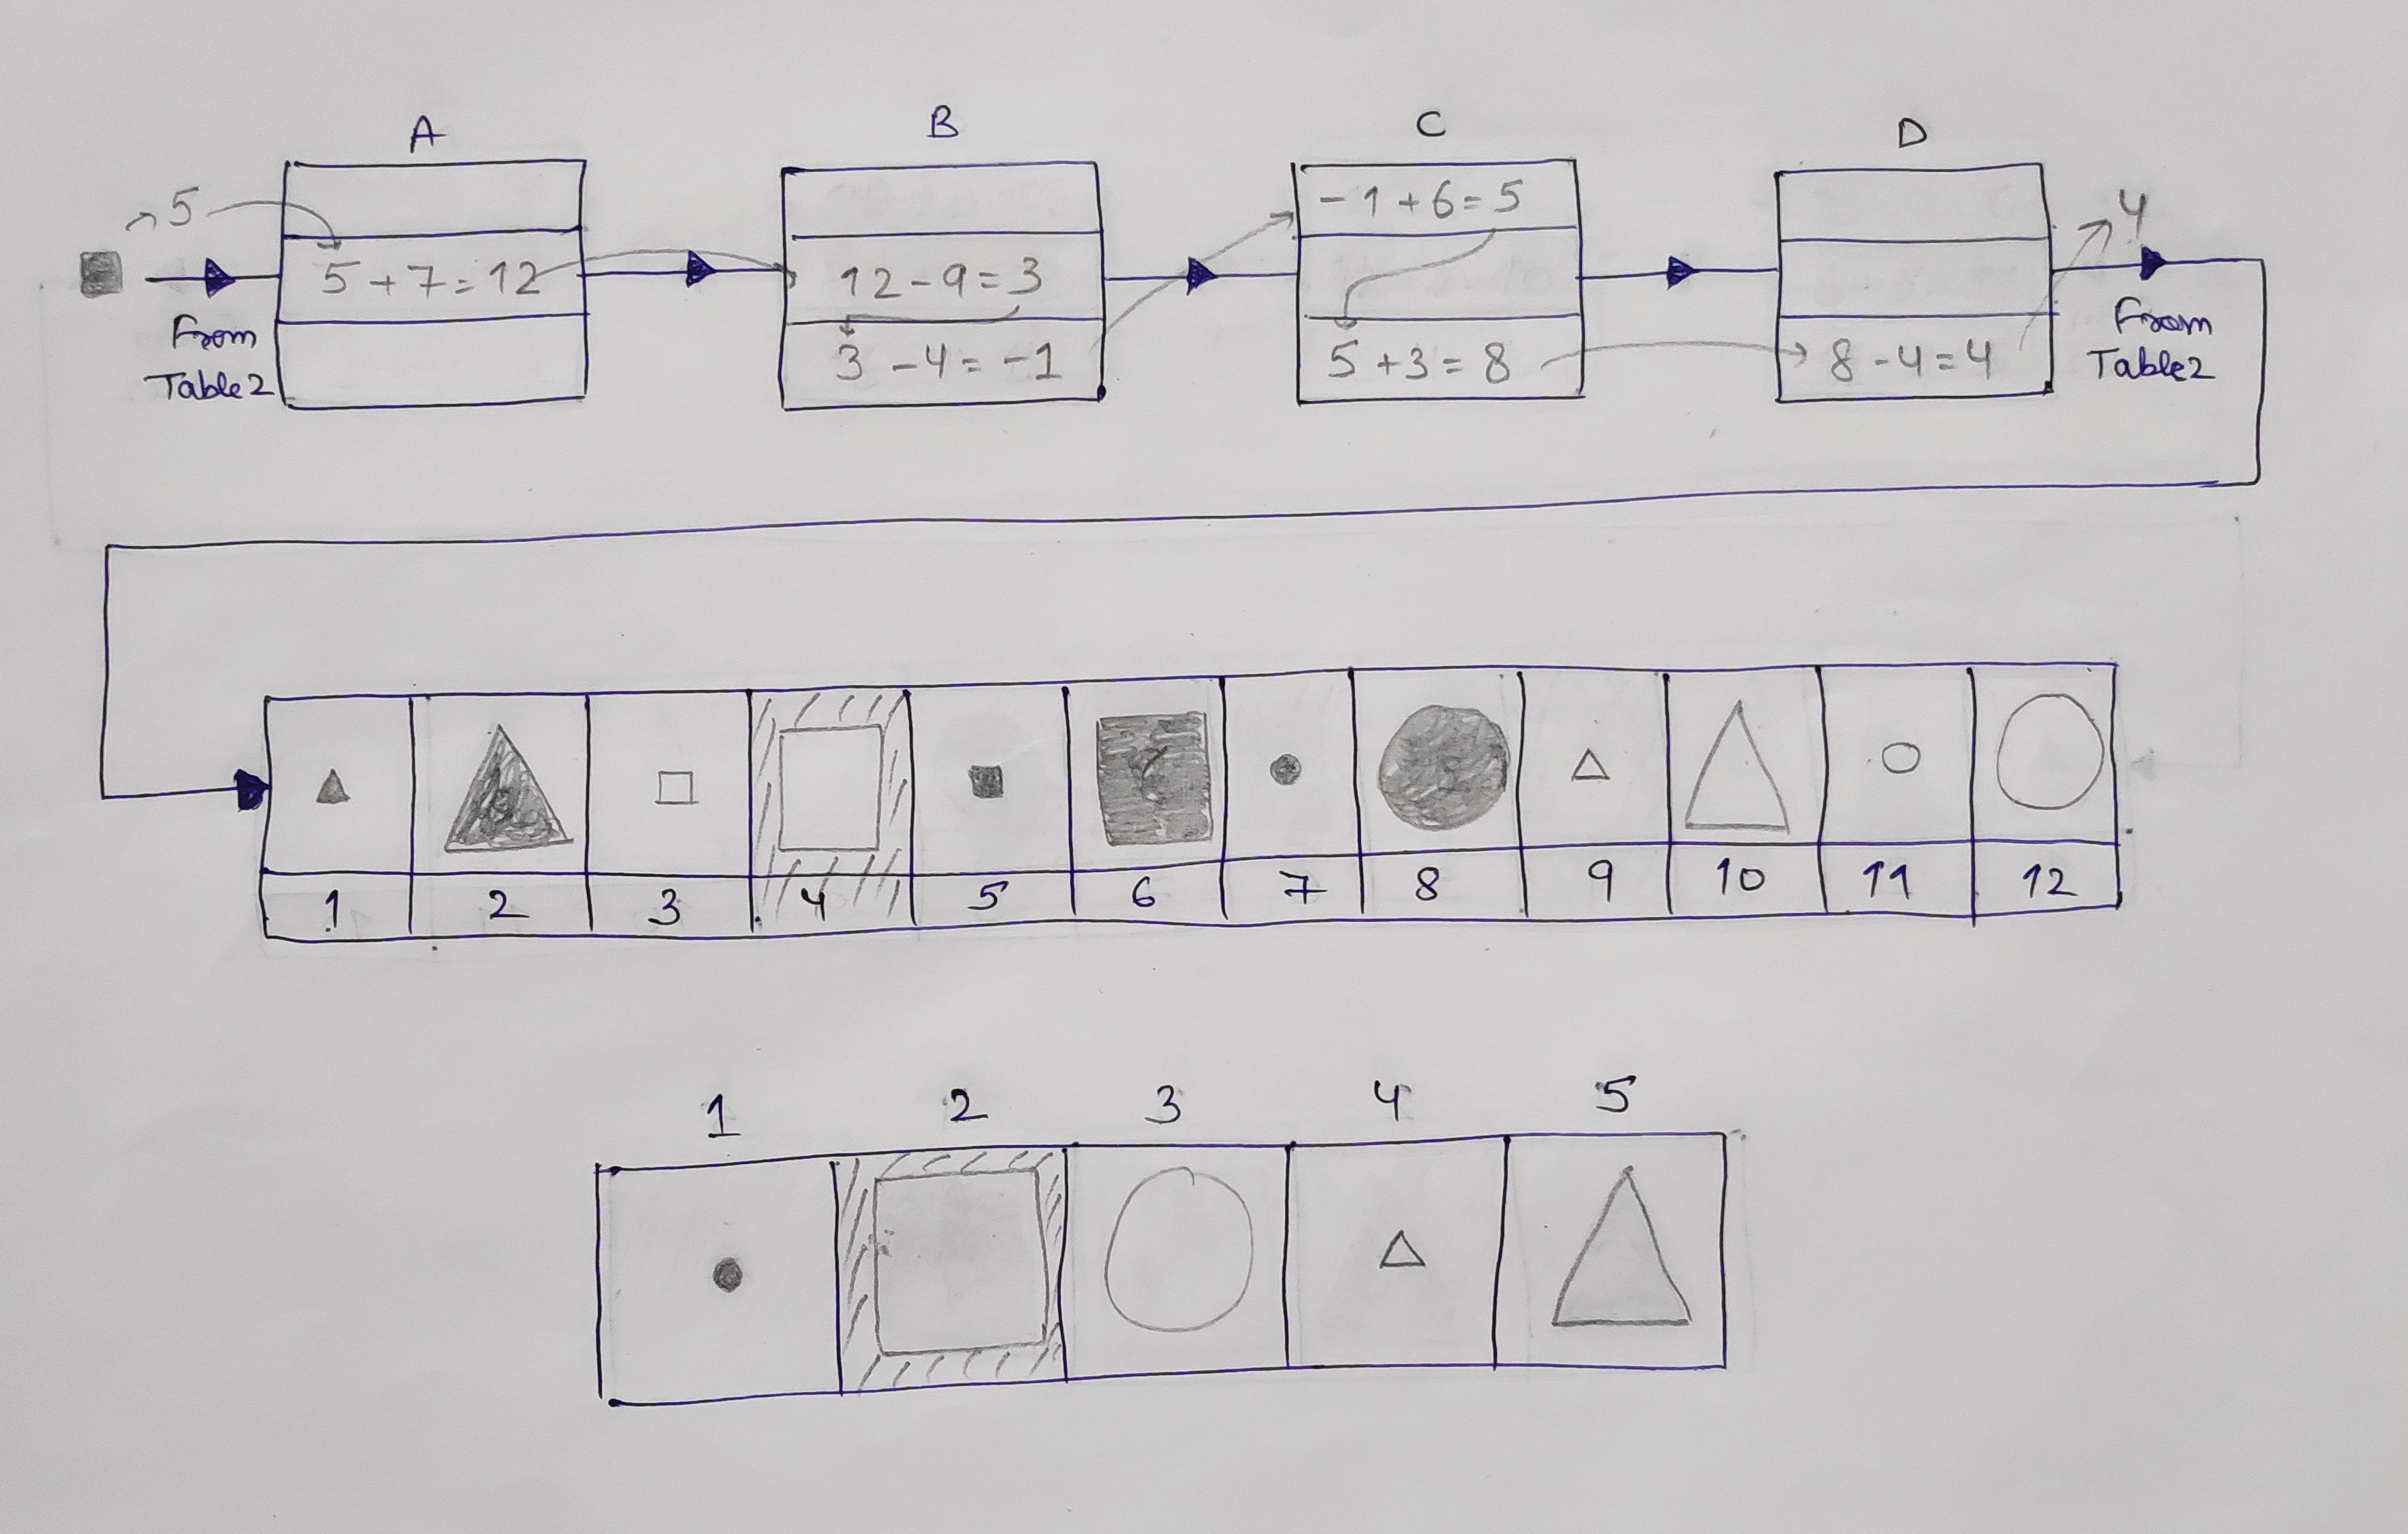 A B C D
5
5 + 7 = 12
12 - 9 = 3
3 - 4 = -1
-1 + 6 = 5
5 + 3 = 8
8 - 4 = 4
4
From
Table2
From
Table2
1 2 3 4 5 6 7 8 9 10 11 12
1 2 3 4 5